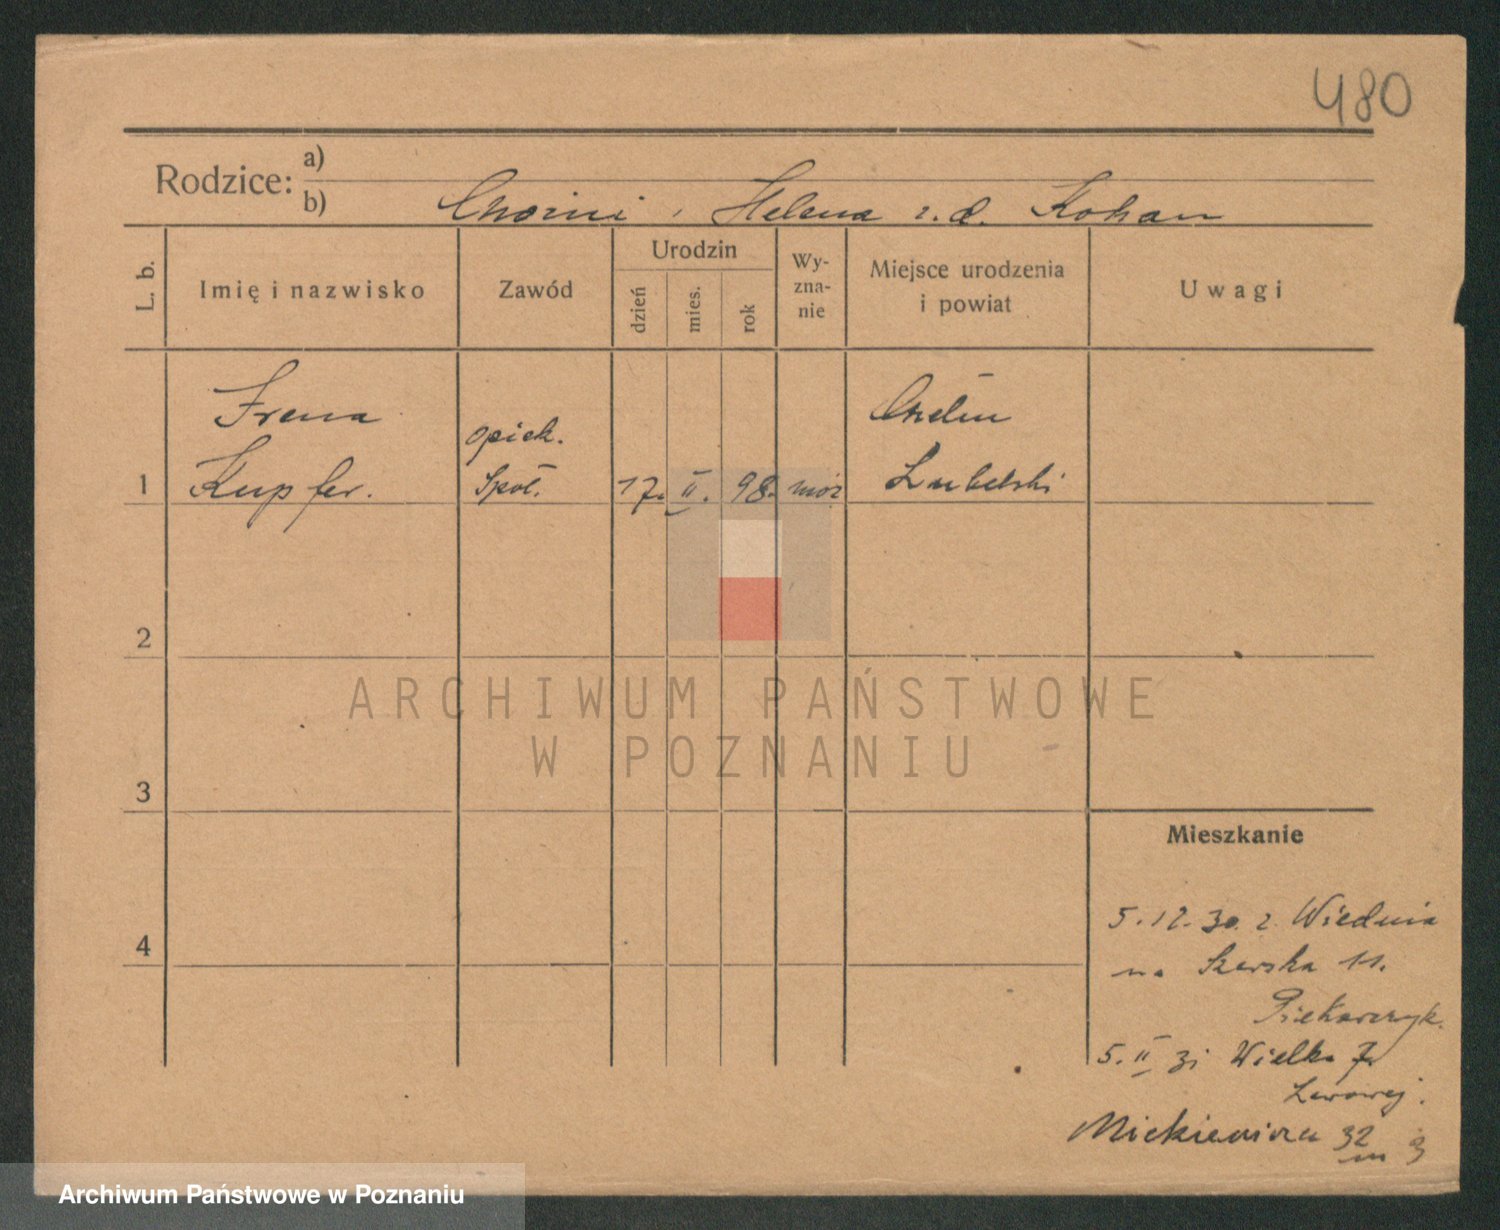 480
Rodzice:
a)
b) Helena z. d. Kohan
L. b.
Imię i nazwisko
Zawód
Urodzin
dzień
mies.
rok
Wy-
zna-
nie
Miejsce urodzenia
i powiat
Uwagi
Irena
Kupfer.
opiek.
Społ.
1
17. II. 98. moż
Chełm
Lubelski
2
3
4
ARCHIWUM PAŃSTWOWE
W POZNANIU
Mieszkanie
5.12.30. z Wiednia
na 11.
Piekarczyk.
5. II 31 Wielka 7
Mickiewicza 32
m 3
Archiwum Państwowe w Poznaniu